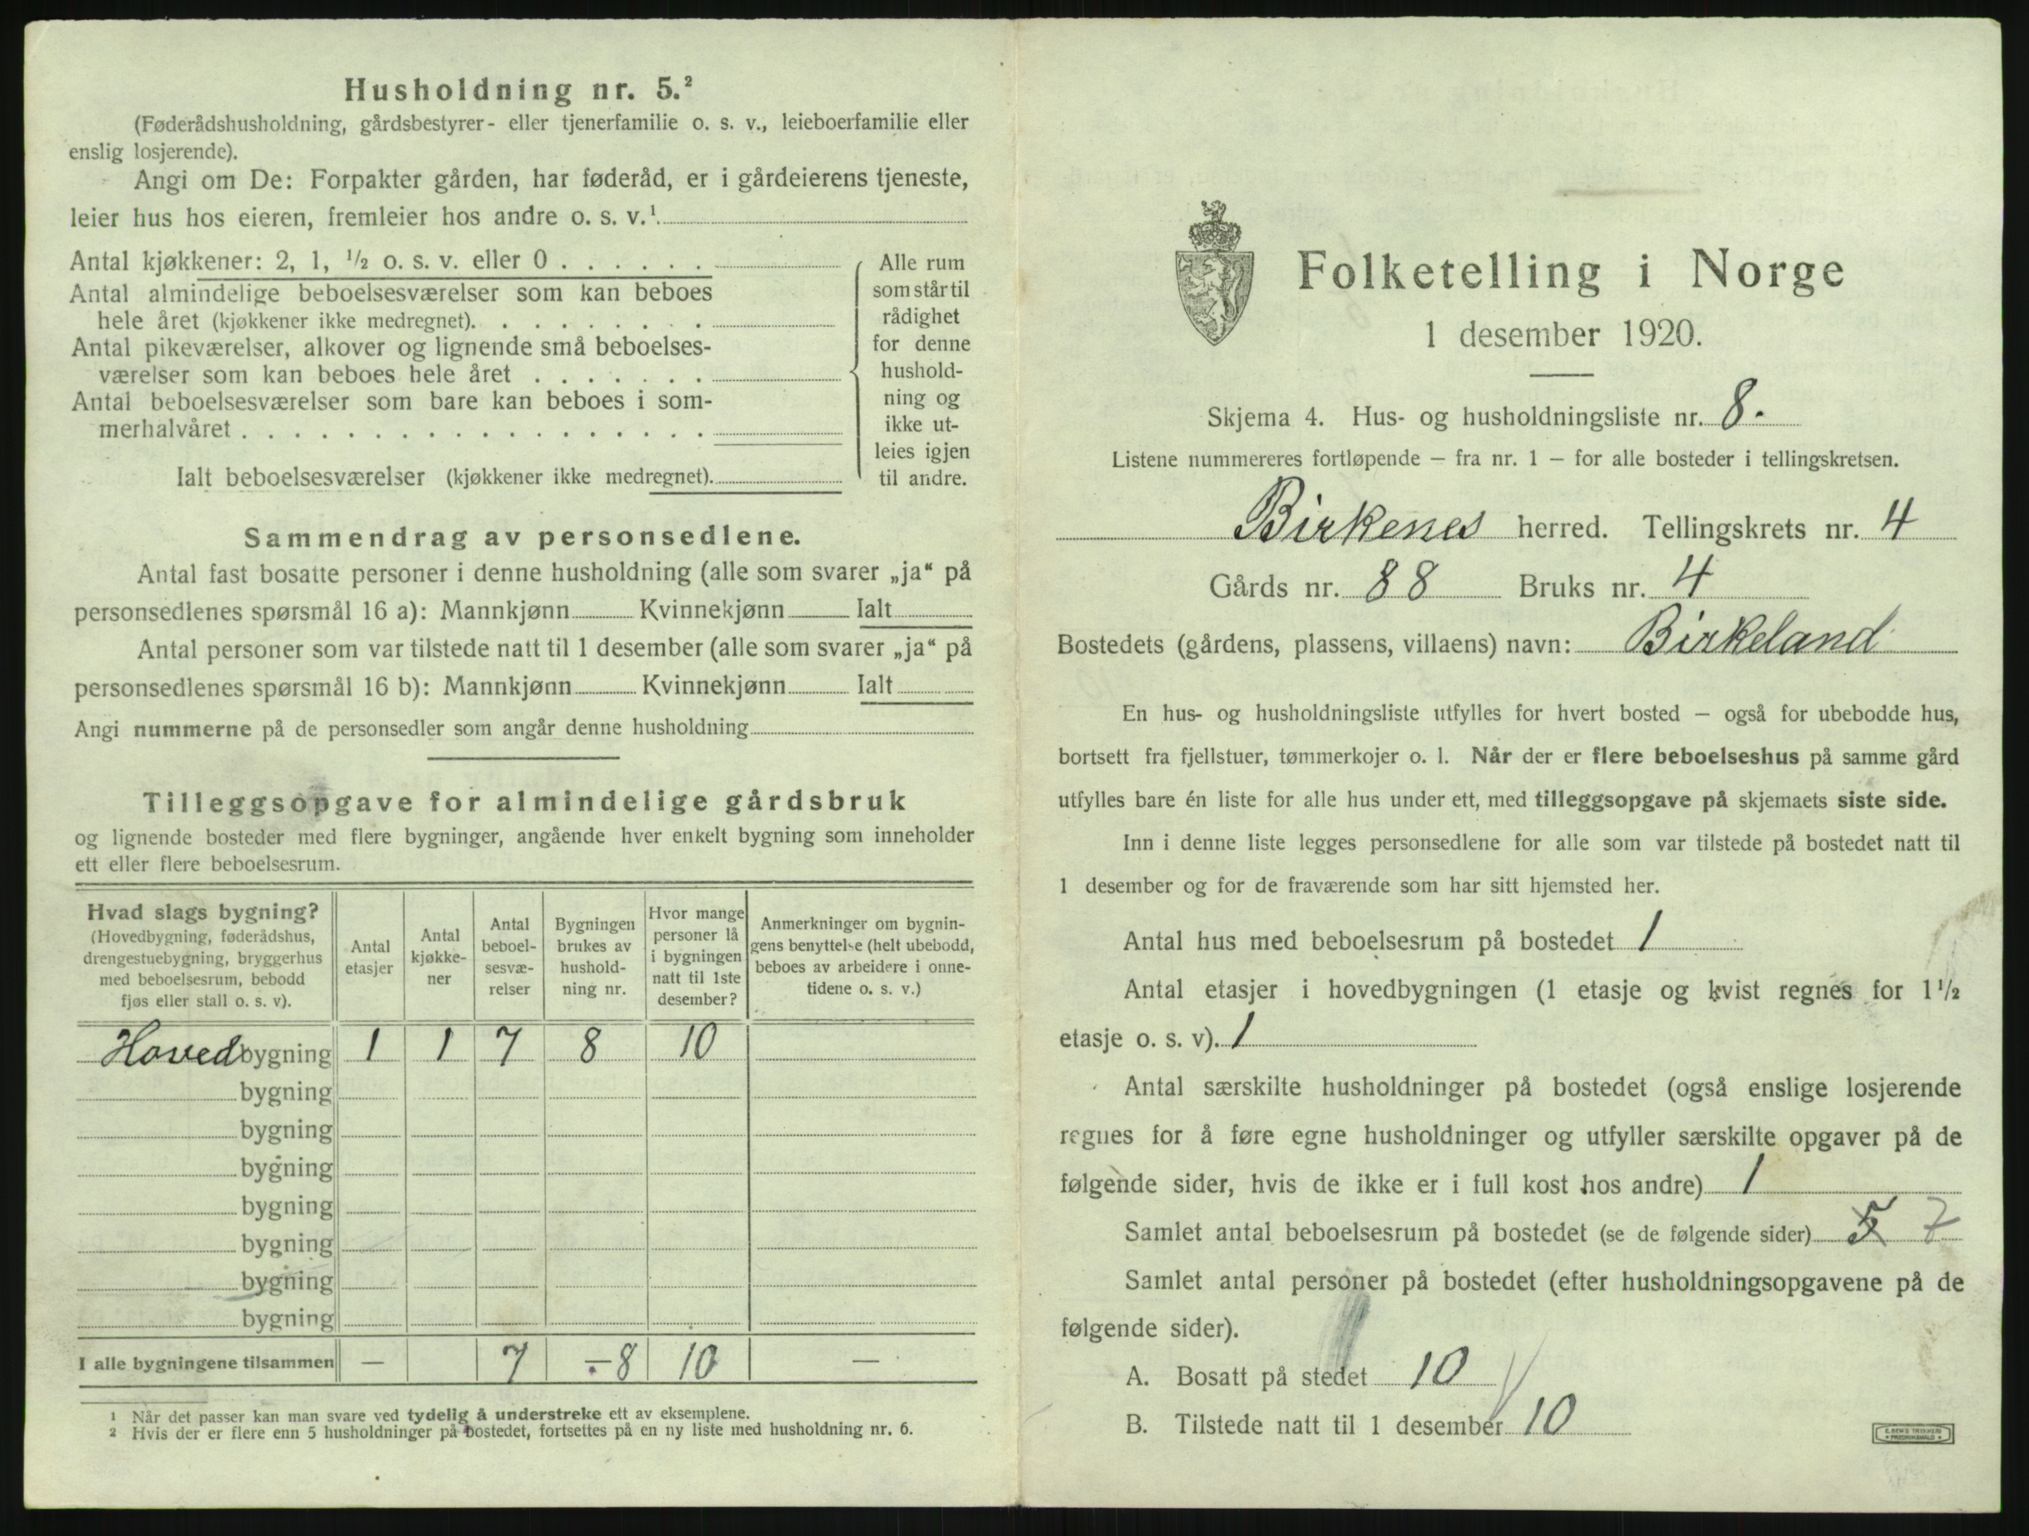 Husholdning nr. 5.²
(Føderådshusholdning, gårdsbestyrer- eller tjenerfamilie o. s. v., leieboerfamilie eller
enslig losjerende).
Angi om De: Forpakter gården, har føderåd, er i gårdeierens tjeneste,
leier hus hos eieren, fremleier hos andre o. s. v.¹
Antal kjøkkener: 2, 1, ½ o. s. v. eller 0 . . . . . .
Antal almindelige beboelsesværelser som kan beboes
hele året (kjøkkener ikke medregnet). . . . . . . . .
Antal pikeværelser, alkover og lignende små beboelses-
værelser som kan beboes hele året . . . . . . .
Antal beboelsesværelser som bare kan beboes i som-
merhalvåret . . . . . . . . . . . . . . . . . .
Ialt beboelsesværelser (kjøkkener ikke medregnet).
Alle rum
som står til
rådighet
for denne
hushold-
ning og
ikke ut-
leies igjen
til andre.
Sammendrag av personsedlene.
Antal fast bosatte personer i denne husholdning (alle som svarer „ja“ på
personsedlenes spørsmål 16 a): Mannkjønn Kvinnekjønn Ialt
Antal personer som var tilstede natt til 1 desember (alle som svarer „ja“ på
personsedlenes spørsmål 16 b): Mannkjønn Kvinnekjønn Ialt
Angi nummerne på de personsedler som angår denne husholdning
Tilleggsopgave for almindelige gårdsbruk
og lignende bosteder med flere bygninger, angående hver enkelt bygning som inneholder
ett eller flere beboelsesrum.
Hvad slags bygning?
(Hovedbygning, føderådshus,
drengestuebygning, bryggerhus
med beboelsesrum, bebodd
fjøs eller stall o. s. v).
Antal
etasjer
Antal
kjøkke-
ner
Antal
beboel-
sesvæ-
relser
Bygningen
brukes av
hushold-
ning nr.
Hvor mange
personer lå
i bygningen
natt til 1ste
desember?
Anmerkninger om bygnin-
gens benyttelse (helt ubebodd,
beboes av arbeidere i onne-
tidene o. s. v.)
Hovedbygning 1 1 7 8 10
bygning
bygning
bygning
bygning
bygning
bygning
bygning
I alle bygningene tilsammen — 7 – 8 10 —
¹ Når det passer kan man svare ved tydelig å understreke ett av eksemplene.
² Hvis der er flere enn 5 husholdninger på bostedet, fortsettes på en ny liste med husholdning nr. 6.
Folketelling i Norge
1 desember 1920.
Skjema 4. Hus- og husholdningsliste nr. 8.
Listene nummereres fortløpende — fra nr. 1 — for alle bosteder i tellingskretsen.
Birkenes herred. Tellingskrets nr. 4
Gårds nr. 88 Bruks nr. 4
Bostedets (gårdens, plassens, villaens) navn: Birkeland
En hus- og husholdningsliste utfylles for hvert bosted — også for ubebodde hus,
bortsett fra fjellstuer, tømmerkojer o. l. Når der er flere beboelseshus på samme gård
utfylles bare én liste for alle hus under ett, med tilleggsopgave på skjemaets siste side.
Inn i denne liste legges personsedlene for alle som var tilstede på bostedet natt til
1 desember og for de fraværende som har sitt hjemsted her.
Antal hus med beboelsesrum på bostedet 1
Antal etasjer i hovedbygningen (1 etasje og kvist regnes for 1½
etasje o. s. v). 1
Antal særskilte husholdninger på bostedet (også enslige losjerende
regnes for å føre egne husholdninger og utfyller særskilte opgaver på de
følgende sider, hvis de ikke er i full kost hos andre) 1
Samlet antal beboelsesrum på bostedet (se de følgende sider) 5 7
Samlet antal personer på bostedet (efter husholdningsopgavene på de
følgende sider).
A. Bosatt på stedet 10
B. Tilstede natt til 1 desember 10